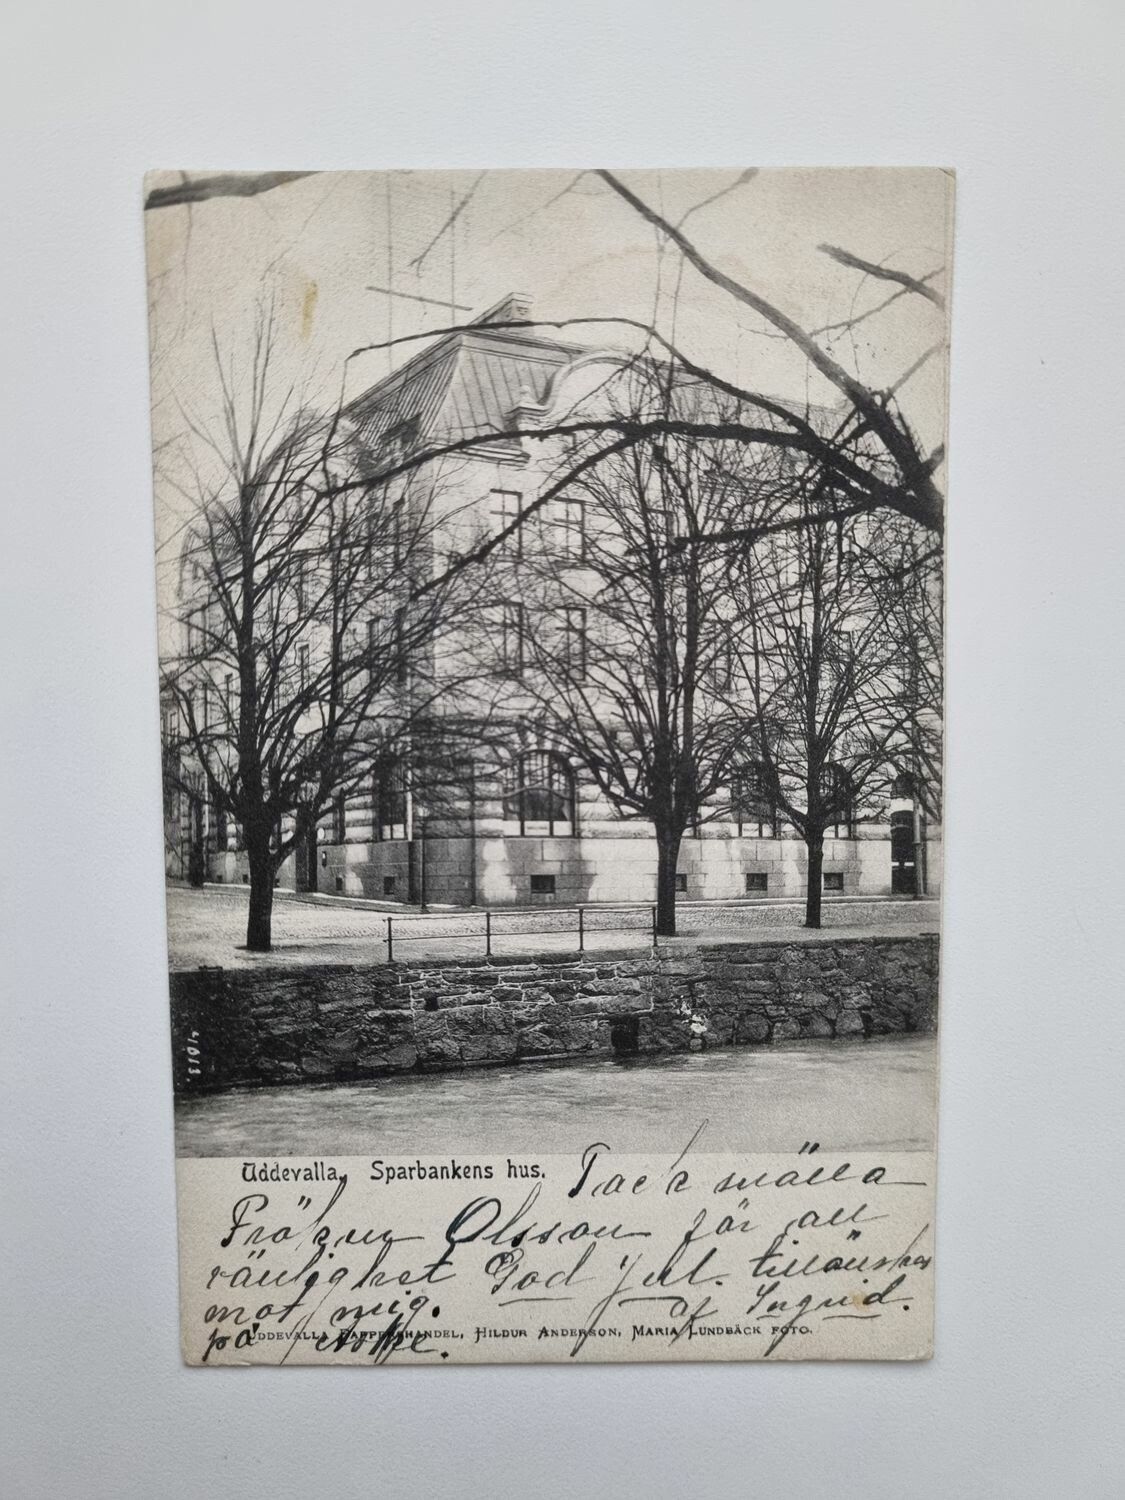 4013.
Uddevalla, Sparbankens hus. Tack snälla
Fröken Olsson för all
vänlighet God Jul. tillönskas
mot mig. af Ingrid.
UDDEVALLA PAPPERSHANDEL, HILDUR ANDERSON, MARIA LUNDBÄCK FOTO.
på